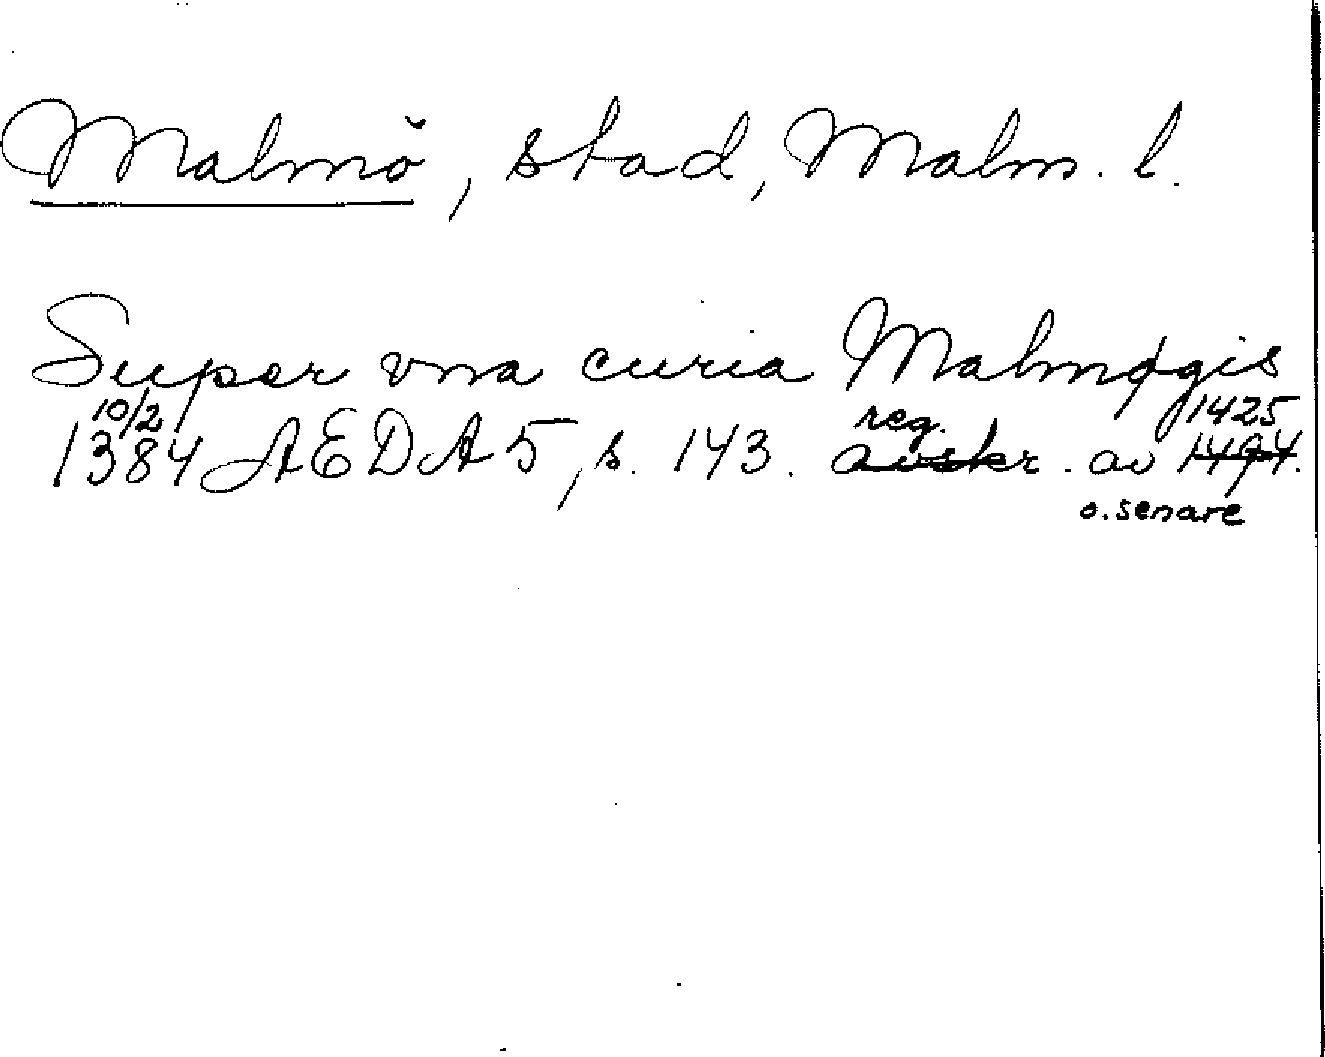 Malmö, stad, Malm. l.
Super vna curia Malmøgis
10/2 reg. 1425
1384 AEDA 5, s. 143. avskr. av 1494.
o. senare